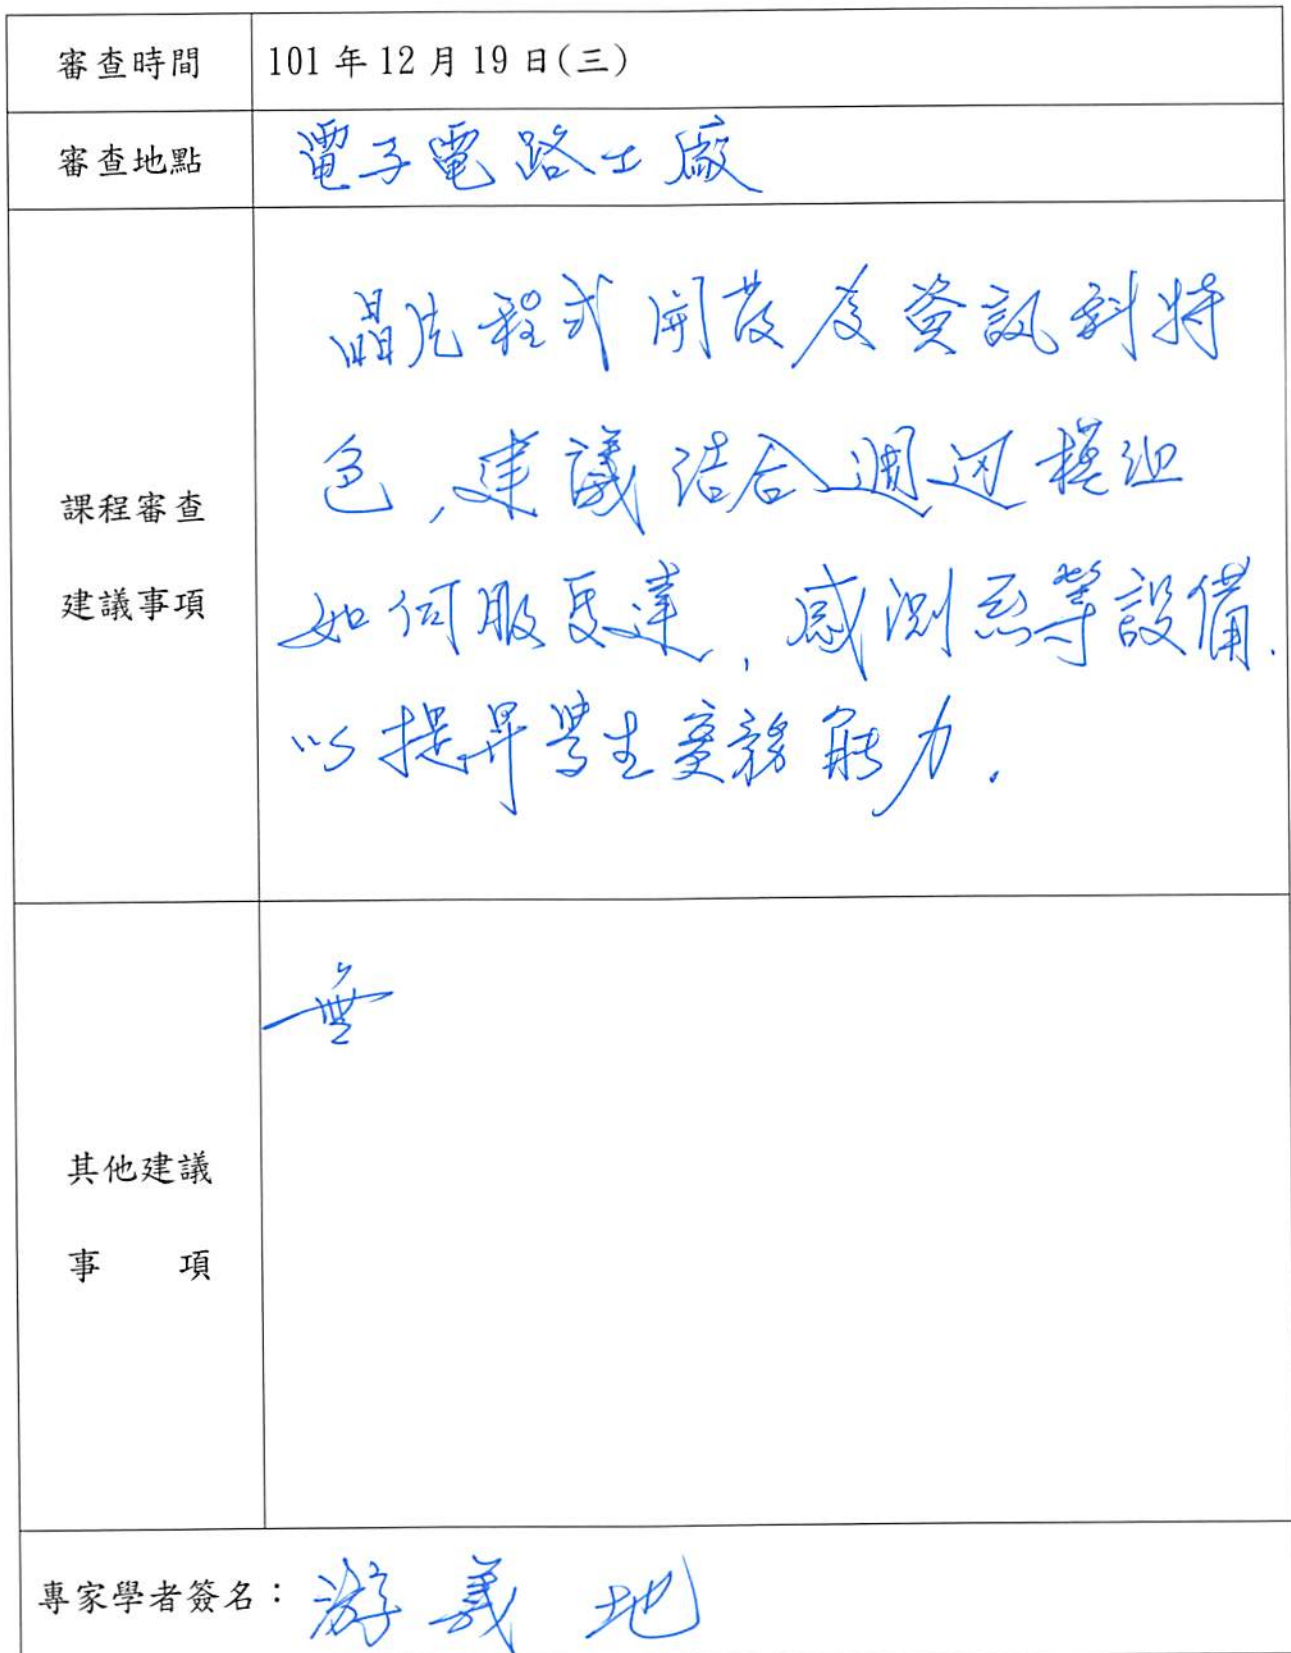 審查時間 101 年 12 月 19 日(三)
審查地點 電子電路工廠
課程審查
建議事項
晶片程式開發為資訊科特
色,建議結合週边模組
如伺服馬達,感測器等設備.
以提昇學生實務能力.
其他建議
事 項
無
專家學者簽名:游義地